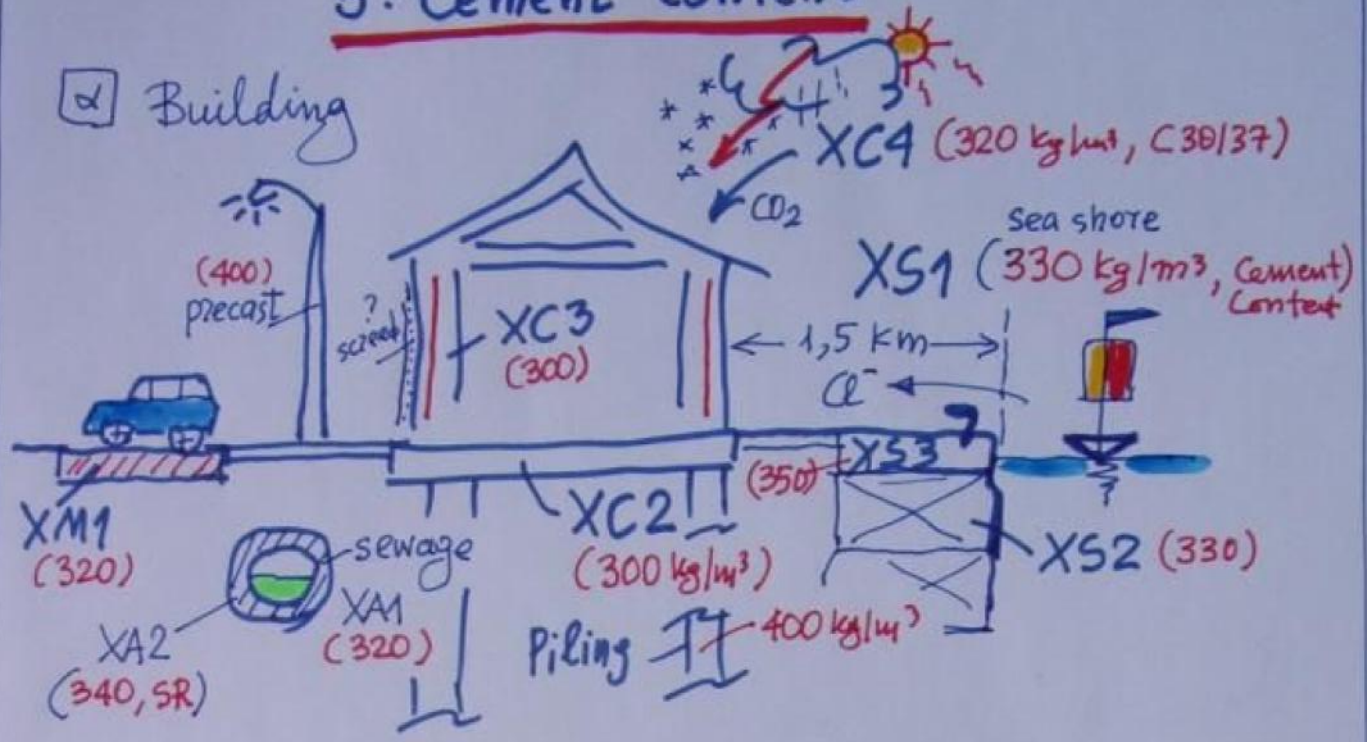 3. Cement
α Building
XC4 (320 kg/m³, C30/37)
CO2
sea shore
XS1 (330 kg/m³, Cement)
Content
(400)
precast
?
screed
XC3
(300)
1,5 km
Cl⁻
XS3
(350)
XM1
(320)
sewage
XC2
(300 kg/m³)
XS2 (330)
XA2
(340, SR)
XA1
(320)
Piling
400 kg/m³